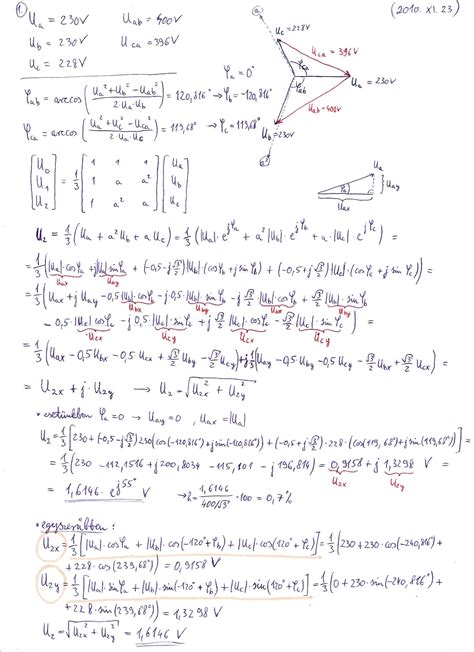 1.
(2010. XI. 23)
Ua = 230V   Uab = 400V
Ub = 230V   Uca = 396V
Uc = 228V
a
Uc = 228V
Uca = 396V
φca
φab
Ua = 230V
Uab = 400V
Ub = 230V
φab = arccos((Ua² + Ub² - Uab²)/(2·Ua·Ub)) = 120,816° → φb = -120,816°
φa = 0°
φca = arccos((Ua² + Uc² - Uca²)/(2·Ua·Uc)) = 119,68° → φc = 119,68°
[U0 U1 U2] = 1/3 [1 1 1; 1 a a²; 1 a² a] [Ua Ub Uc]
Ua
φa
Uay
Uax
U2 = 1/3 (Ua + a²Ub + aUc) = 1/3 (|Ua|·e^jφa + a²|Ub|·e^jφb + a·|Uc|·e^jφc) =
= 1/3 (|Ua|·cosφa + j|Ua|·sinφa + (-0,5-j√3/2)|Ub|·(cosφb + j sinφb) + (-0,5+j√3/2)|Uc|·(cosφc + j sinφc)) =
Uax Uay
= 1/3 (Uax + jUay - 0,5|Ub|·cosφb - j0,5|Ub|·sinφb - j√3/2|Ub|·cosφb + √3/2|Ub|·sinφb
Ubx Uby Ubx Uby
- 0,5|Uc|·cosφc - j0,5|Uc|·sinφc + j√3/2|Uc|·cosφc - √3/2|Uc|·sinφc) =
Ucx Ucy Ucx Ucy
= 1/3 (Uax - 0,5Ubx - 0,5·Ucx + √3/2Uby - √3/2Ucy) + j1/3(Uay - 0,5Uby - 0,5Ucy - √3/2Ubx + √3/2Ucx) =
= U2x + j·U2y → U2 = √(U2x² + U2y²)
* esetünkben φa = 0 → Uay = 0, Uax = |Ua|
U2 = 1/3[230 + (-0,5-j√3/2)230(cos(-120,816°) + jsin(-120,816°)) + (-0,5+j√3/2)·228·(cos(119,68°) + jsin(119,68°))] =
= 1/3 (230 - 112,1516 + j200,8034 - 115,101 - j196,814) = 0,9158 + j 1,3298 V =
U2x U2y
= 1,6146·e^j55° V → ε = 1,6146/(400/√3)·100 = 0,7%
* egyszerűbben:
U2x = 1/3[|Ua|·cosφa + |Ub|·cos(-120°+φb) + |Uc|·cos(120°+φc)] = 1/3[230 + 230·cos(-240,816°) +
+ 228·cos(239,68°)] = 0,9158 V
U2y = 1/3[|Ua|·sinφa + |Ub|·sin(-120°+φb) + |Uc|·sin(120°+φc)] = 1/3[0 + 230·sin(-240,816°) +
+ 228·sin(239,68°)] = 1,3298 V
U2 = √(U2x² + U2y²) = 1,6146 V